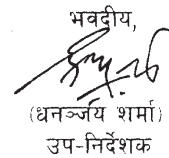 भवदीय,
(धनञ्जय शर्मा)
उप-निर्देशक